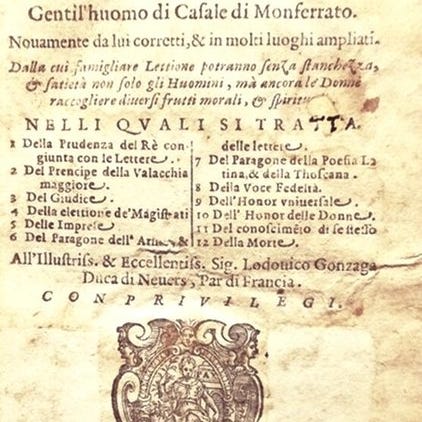 Gentil'huomo di Casale di Monferrato.
Nouamente da lui corretti, & in molti luoghi ampliati.
Dalla cui famigliare Lettione potranno senza stanchezza,
& satietà non solo gli Huomini, mà ancora le Donne
raccogliere diuersi frutti morali, & spiritu
NELLI QVALI SI TRATTA.
1 Della Prudenza del Rè con-
giunta con le Lettere.
2 Del Prencipe della Valacchia
maggiore.
3 Del Giudice.
4 Della elettione de' Magistrati
5 Delle Imprese
6 Del Paragone dell' Arme, &
delle lettere.
7 Del Paragone della Poesia La
tina, & della Thoscana.
8 Della Voce Fedeltà.
9 Dell' Honor vniuersale.
10 Dell' Honor delle Donne.
11 Del conoscimẽto di se stesso
12 Della Morte.
All'Illustriss. & Eccellentiss. Sig. Lodouico Gonzaga
Duca di Neuers, Par di Francia.
CON PRIVILEGI.